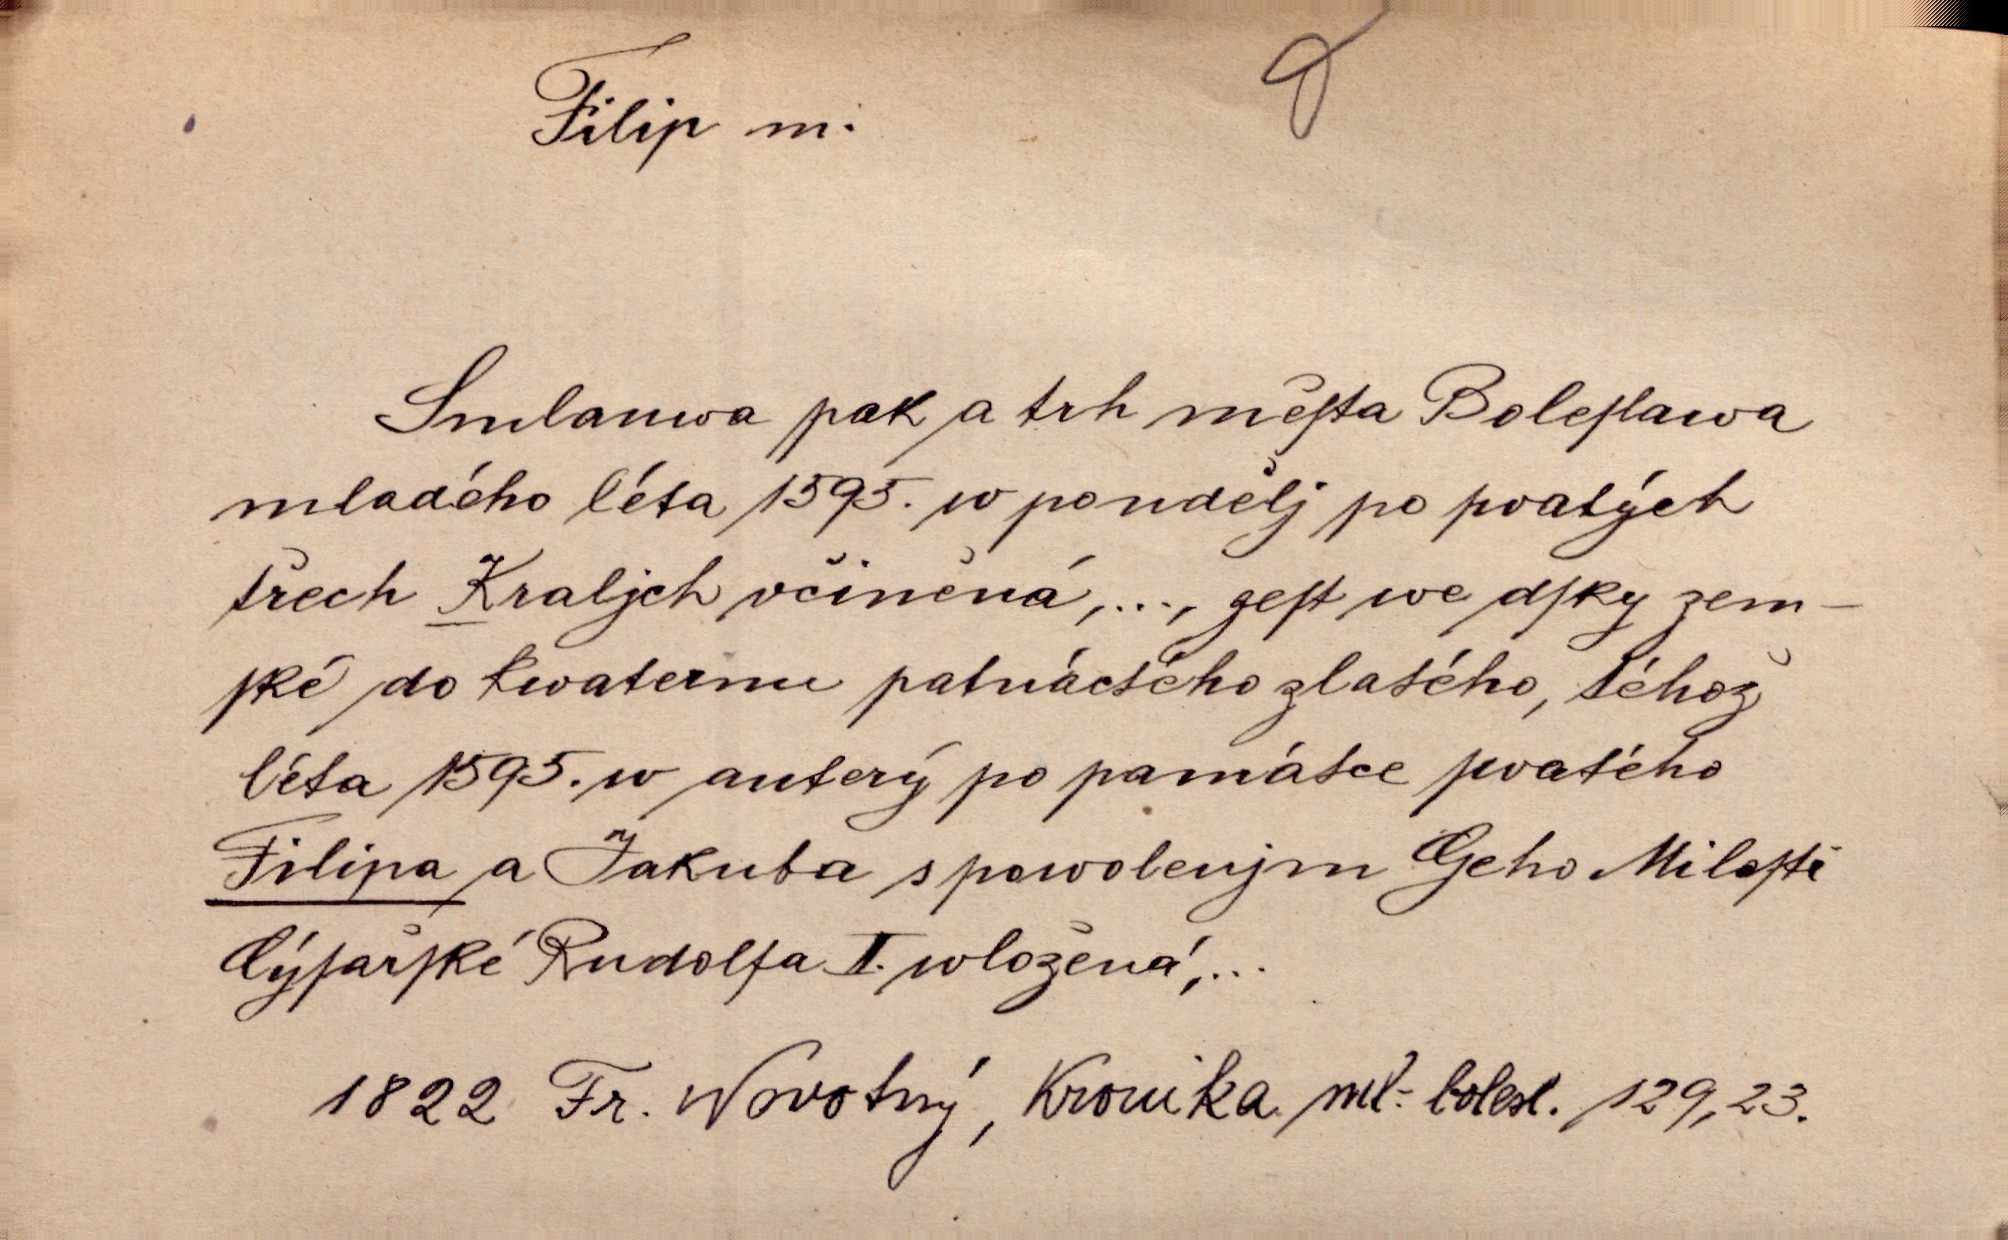 Filip m.
Smlauwa pak a trh měſta Boleſlawa
mladého léta 1595. w pondělj po ſvatých
třech Kraljch včiněná,..., geſt we dſky zem-
ſké do kwaternu patnáctého zlatého, téhož
léta 1595. w auterý po památce ſvatého
Filipa a Jakuba s powolenjm Geho Miloſti
Cýſařſké Rudolfa II. wložená,...
1822 Fr. Novotný, Kronika ml.- bolesl. 129,23.